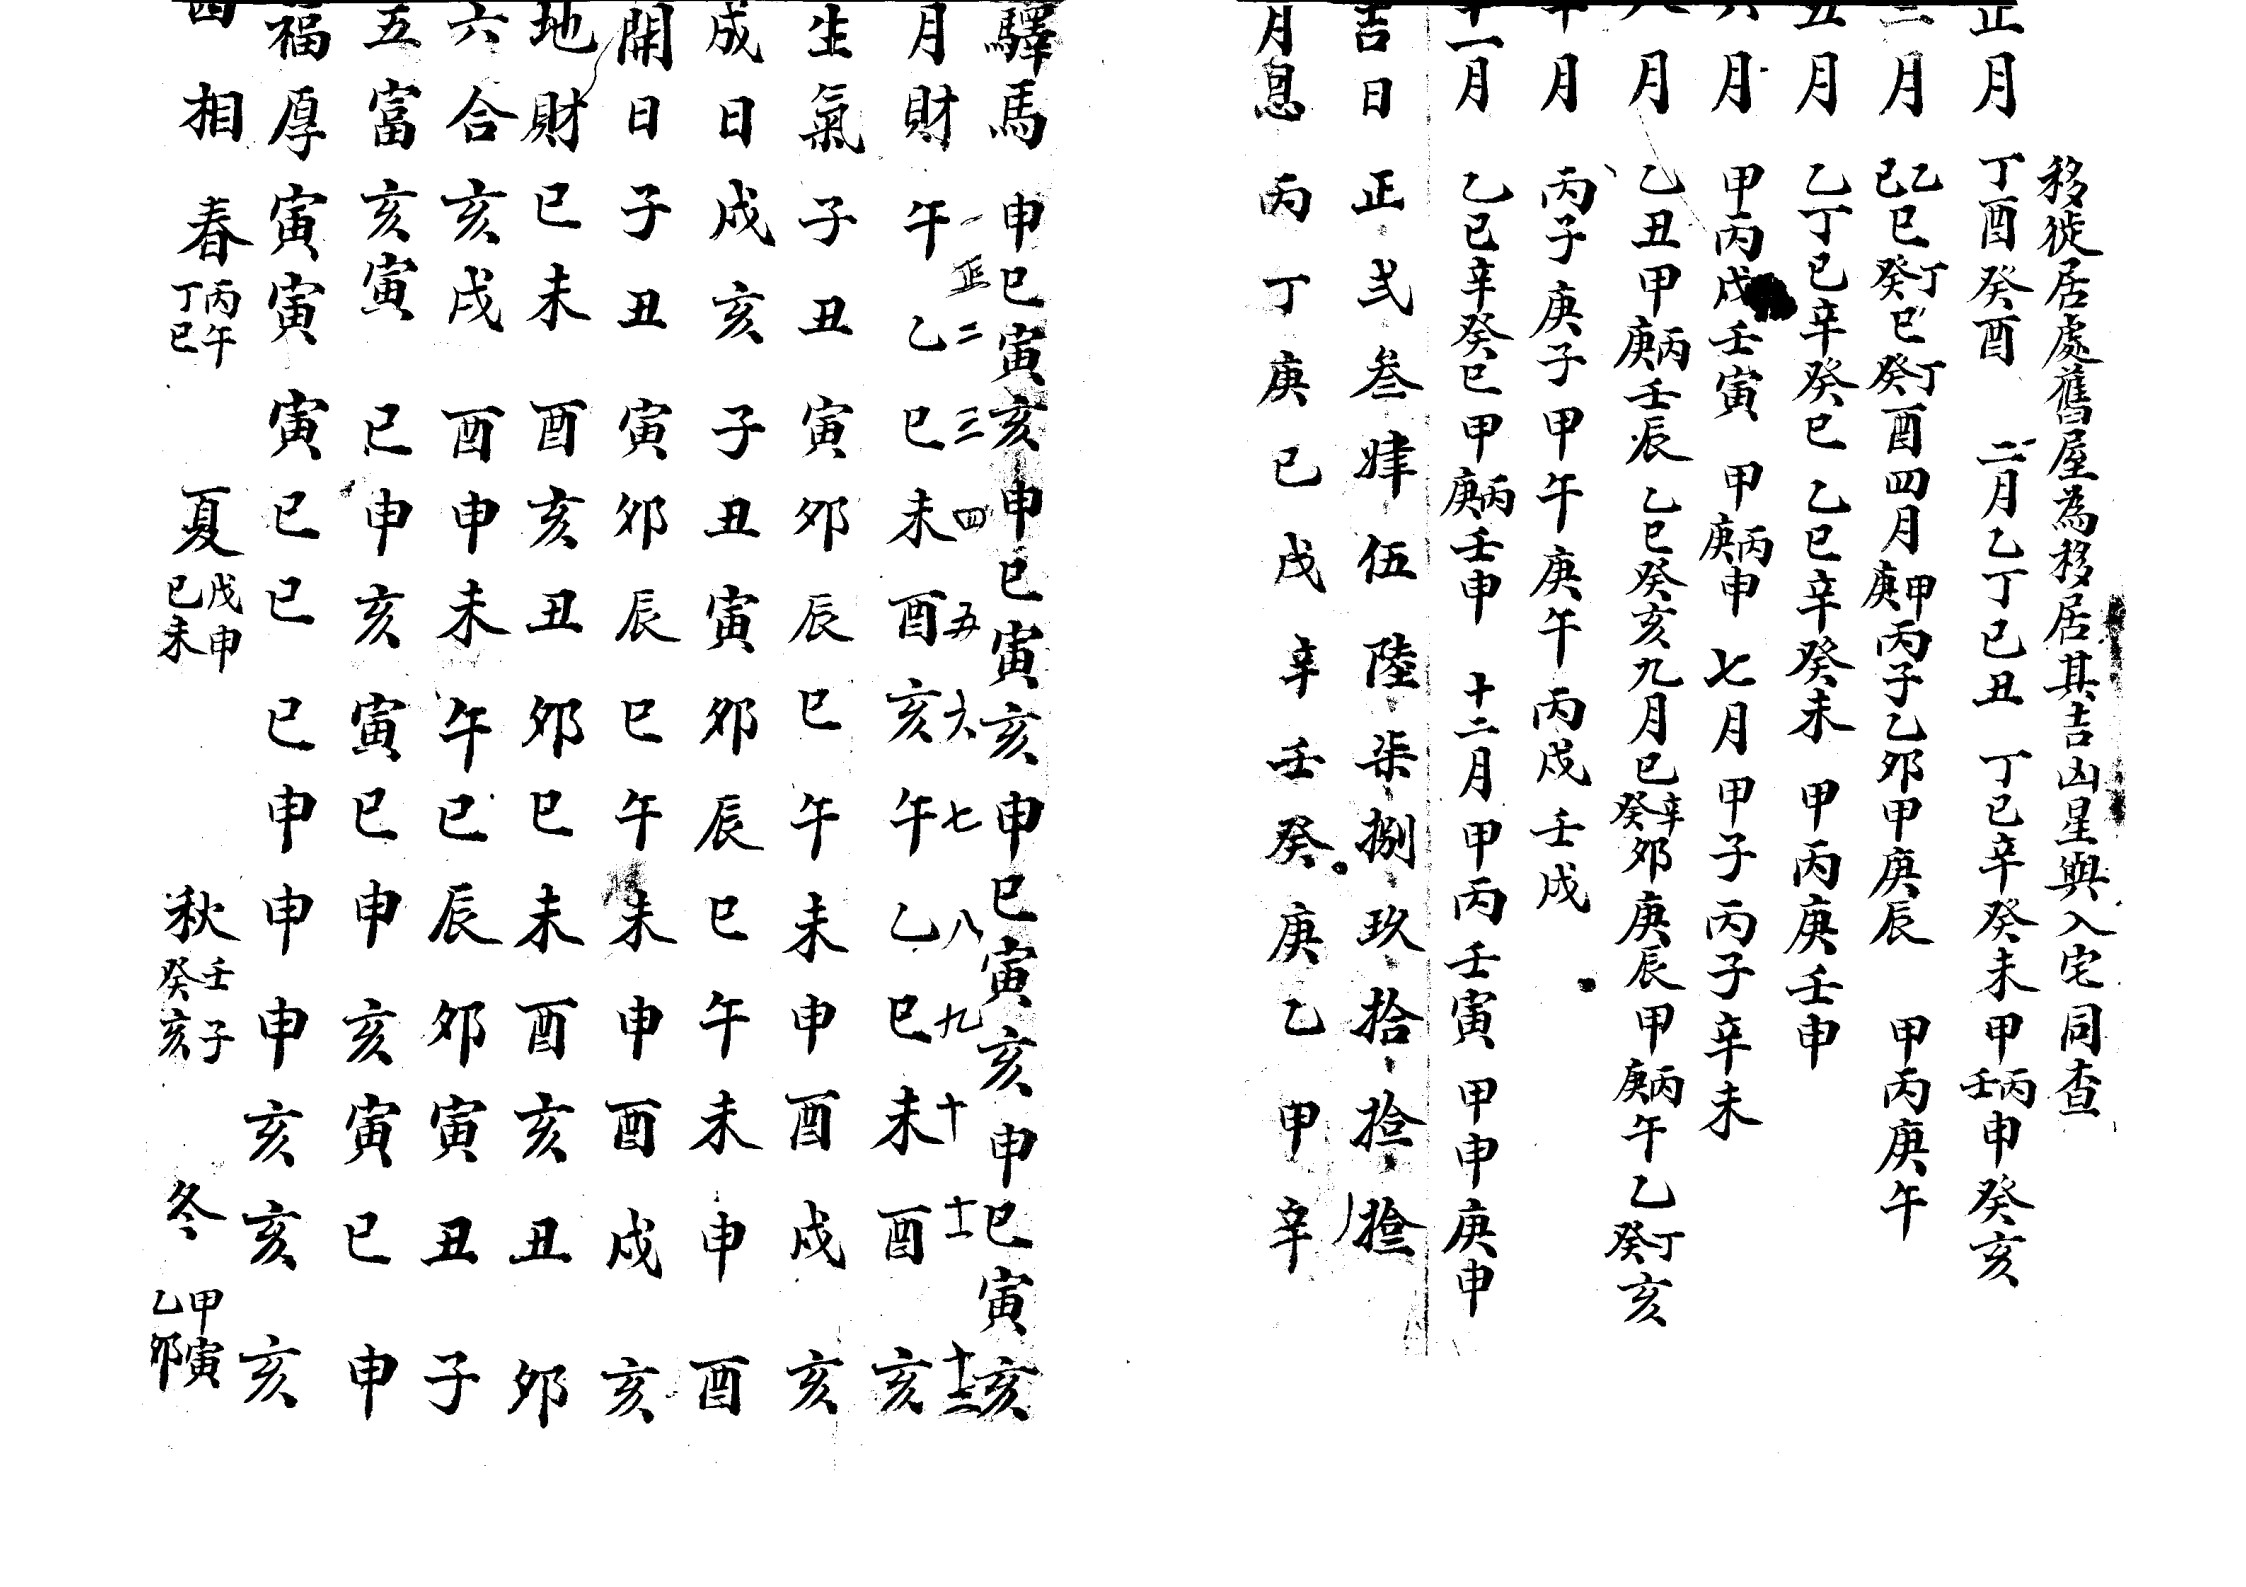 移徙居處舊屋為移居其吉凶星與入宅同查
正月 丁酉癸酉 二月乙丁巳丑 丁巳辛癸未甲丙壬申癸亥
三月 乙己巳丁癸巳丁癸酉四月甲庚丙子乙卯甲庚辰 甲丙庚午
五月 乙丁巳辛癸巳 乙巳辛癸未 甲丙庚壬申
六月 甲丙戌壬寅 甲丙庚申 七月甲子丙子辛未
八月 乙丑甲丙庚壬辰 乙巳癸亥九月巳辛癸卯庚辰甲丙庚午乙丁癸亥
十月 丙子庚子甲午庚午丙戌壬戌
十一月 乙巳辛癸巳甲丙庚壬申 十二月甲丙壬寅 甲申庚申
吉日 正弍叁肆伍陸柒捌玖拾
月息 丙丁庚巳戊辛壬癸庚乙甲辛
驛馬 申巳寅亥申巳寅亥申巳寅亥申巳寅亥
正二三四五六七八九十十一十二
月財 午乙巳未酉亥午乙巳未酉亥
生氣 子丑寅卯辰巳午未申酉戌亥
成日 戌亥子丑寅卯辰巳午未申酉
開日 子丑寅卯辰巳午未申酉戌亥
地財 巳未酉亥丑卯巳未酉亥丑卯
六合 亥戌酉申未午巳辰卯寅丑子
五富 亥寅巳申亥寅巳申亥寅巳申
福厚 寅寅寅巳巳巳申申申亥亥亥
四相 春丙午丁巳 夏戊申己未 秋壬子癸亥 冬甲寅乙卯